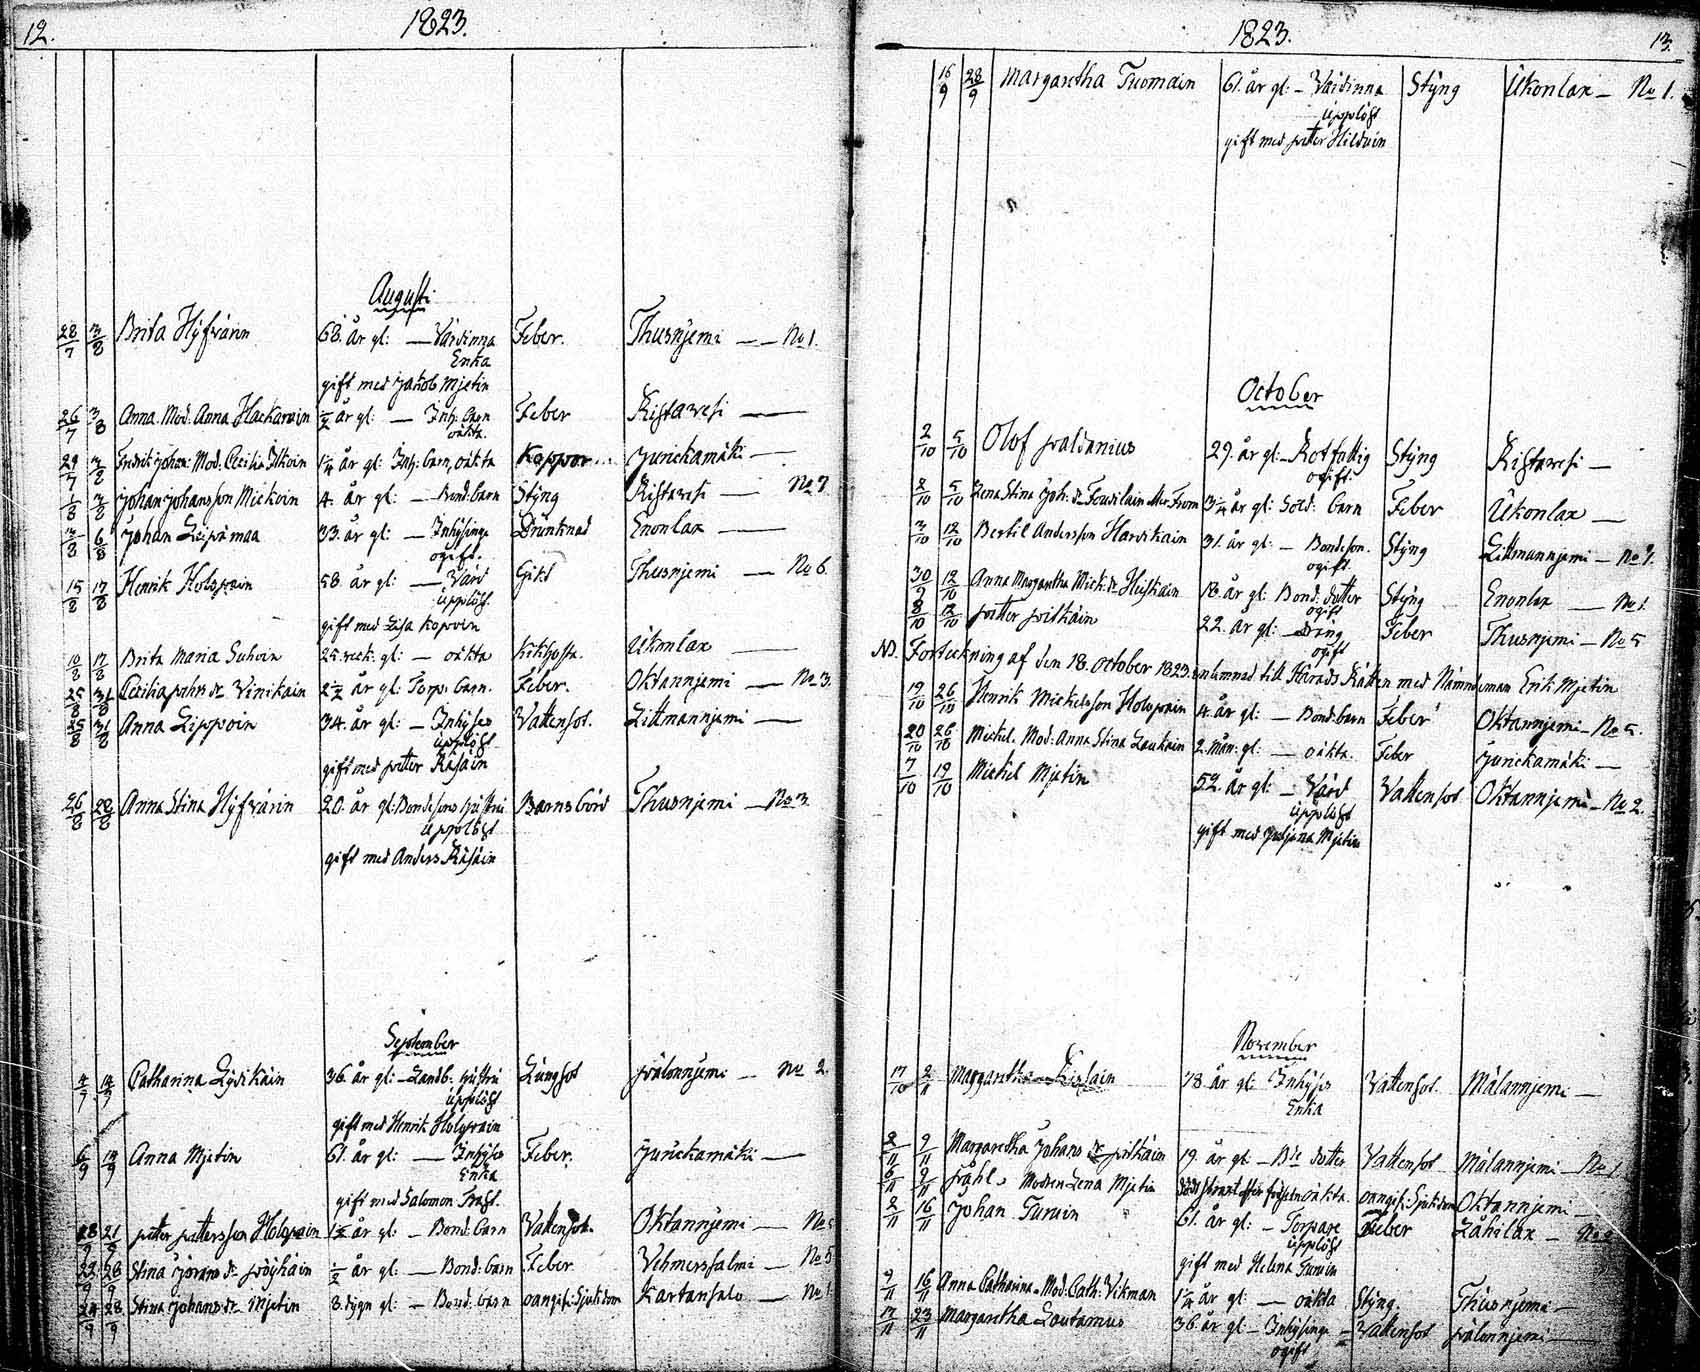 12.
1823.
Augusti
28/7 3/8 Brita Hyfvärin 68. år gl: — Värdinna Feber. Thusnjemi — — No 1.
Enka
gift med Jakob Mjetin
26/7 3/8 Anna. Mod. Anna Hackarain 1/2 år gl: — Inh: barn Feber Ristavesi —
oäkta.
29/7 3/8 Fredrik Johan: Mod: Cecilia Itkoin 1 1/4 år gl: Inh: barn, oäkta Koppor Jurickamäki —
1/8 3/8 Johan Johansson Mickoin 4. år gl: — Bond: barn Styng Ristavesi — No 7
3/8 6/8 Johan Leipämaa 33. år gl: — Inhysinge Drunknad Enonlax —
ogift.
15/8 17/8 Henrik Holopain 58. år gl: — Värd Gikt Thusnjemi — No 6.
upplöst.
gift med Lisa Kopoin
10/8 17/8 Brita Maria Suhoin 25. veck. gl: — oäkta Kikhosta. Ukonlax —
25/8 31/8 Cecilia Johs dr Vinikain 2 1/2 år gl: Torp: barn. Feber. Oktannjemi — No 3.
25/8 31/8 Anna Lippoin 34. år gl: — Inhyses Vattensot. Littmannjemi —
upplöst
gift med Petter Räsäin
26/8 Anna Stina Hyfvärin 20. år gl: Bondesons hustru Barnsbörd Thusnjemi — No 3.
upplöst
gift med Anders Räsäin
September
4/9 14/9 Catharina Lydikäin 36. år gl: — Landb: hustru Lungsot Pälonnjemi — No 2.
upplöst
gift med Henrik Holopain
6/9 14/9 Anna Mjetin 61. år gl: — Inhyses Feber. Jurickamäki —
Enka
gift med Salomon
18/9 21/9 Petter Pettersson Holopain 1 1/2 år gl: — Bond: barn Vattensot. Oktannjemi — No 5
22/9 28/9 Stina Görans dr Pöyhäin 1/2 år gl: — Bond: barn Feber Vehmersalmi — No 5
24/9 28/9 Stina Johans dr. Mjetin 8. dygn gl: — Bond: barn oangifv: Sjukdom Kartansalo — No 1
13.
1823.
16/9 28/9 Margaretha Tuomain 61. år gl: — Värdinna Styng Ukonlax — No 1.
upplöst
gift med Petter Hilduin
October
2/10 5/10 Olof Paldanius 29. år gl: — Rotfattig Styng Ristavesi —
ogift.
2/10 5/10 Lena Stina Joh: dr 3 1/4 år gl: Sold: barn Feber Ukonlax —
3/10 12/10 Bertil Andersson Hardikain 31. år gl: — Bondeson. Styng Littmannjemi — No 7.
ogift.
30/9 12/10 Anna Margaretha Mick: dr Heiskain 18 år gl: Bond: dotter Styng Enonlax — No 1.
ogift
8/10 12/10 Petter Pitkäin 22. år gl: — Dräng Feber Thusnjemi — No 5
ogift
NB. Forteckning af den 18. october 1823. inlemnad till Härads Rätten med Nämndeman Erik Mjetin
19/10 26/10 Henrik Mickelsson Holopain 4. år gl: — Bond: barn Feber Oktannjemi — No 5.
20/10 26/10 Mickel. Mod: Anna Stina Laukain 2. mån: gl: — oäkta. Feber Jurickamäki —
7/10 19/10 Mickel Mjetin 52. år gl: — Värd Vattensot Oktannjemi — No 2.
upplöst
gift med Juljana Mjetin
November
17/10 2/11 Margaretha 78. år gl: Inhyses Vattensot. Mälannjemi —
Enka
2/11 9/11 Margaretha Johans dr Pitkäin 19. år gl — Bde dotter Vattensot Mälannjemi — No 1
6/11 9/11 Påhl, Modren Lena Mjetin död strax efter födseln oäkta. oangif: Sjukdom Oktannjemi —
2/11 16/11 Johan Turuin 61. år gl: — Torpare Feber Lähilax —
upplöst
gift med Helena Turuin
9/11 16/11 Anna Catharina Mod. Cath: Vikman 1 1/4 år gl: — oäkta Styng. Thusnjemi —
17/11 23/11 Margaretha Lautamus 36. år gl — Inhysinge — Vattensot Pälonnjemi —
ogift